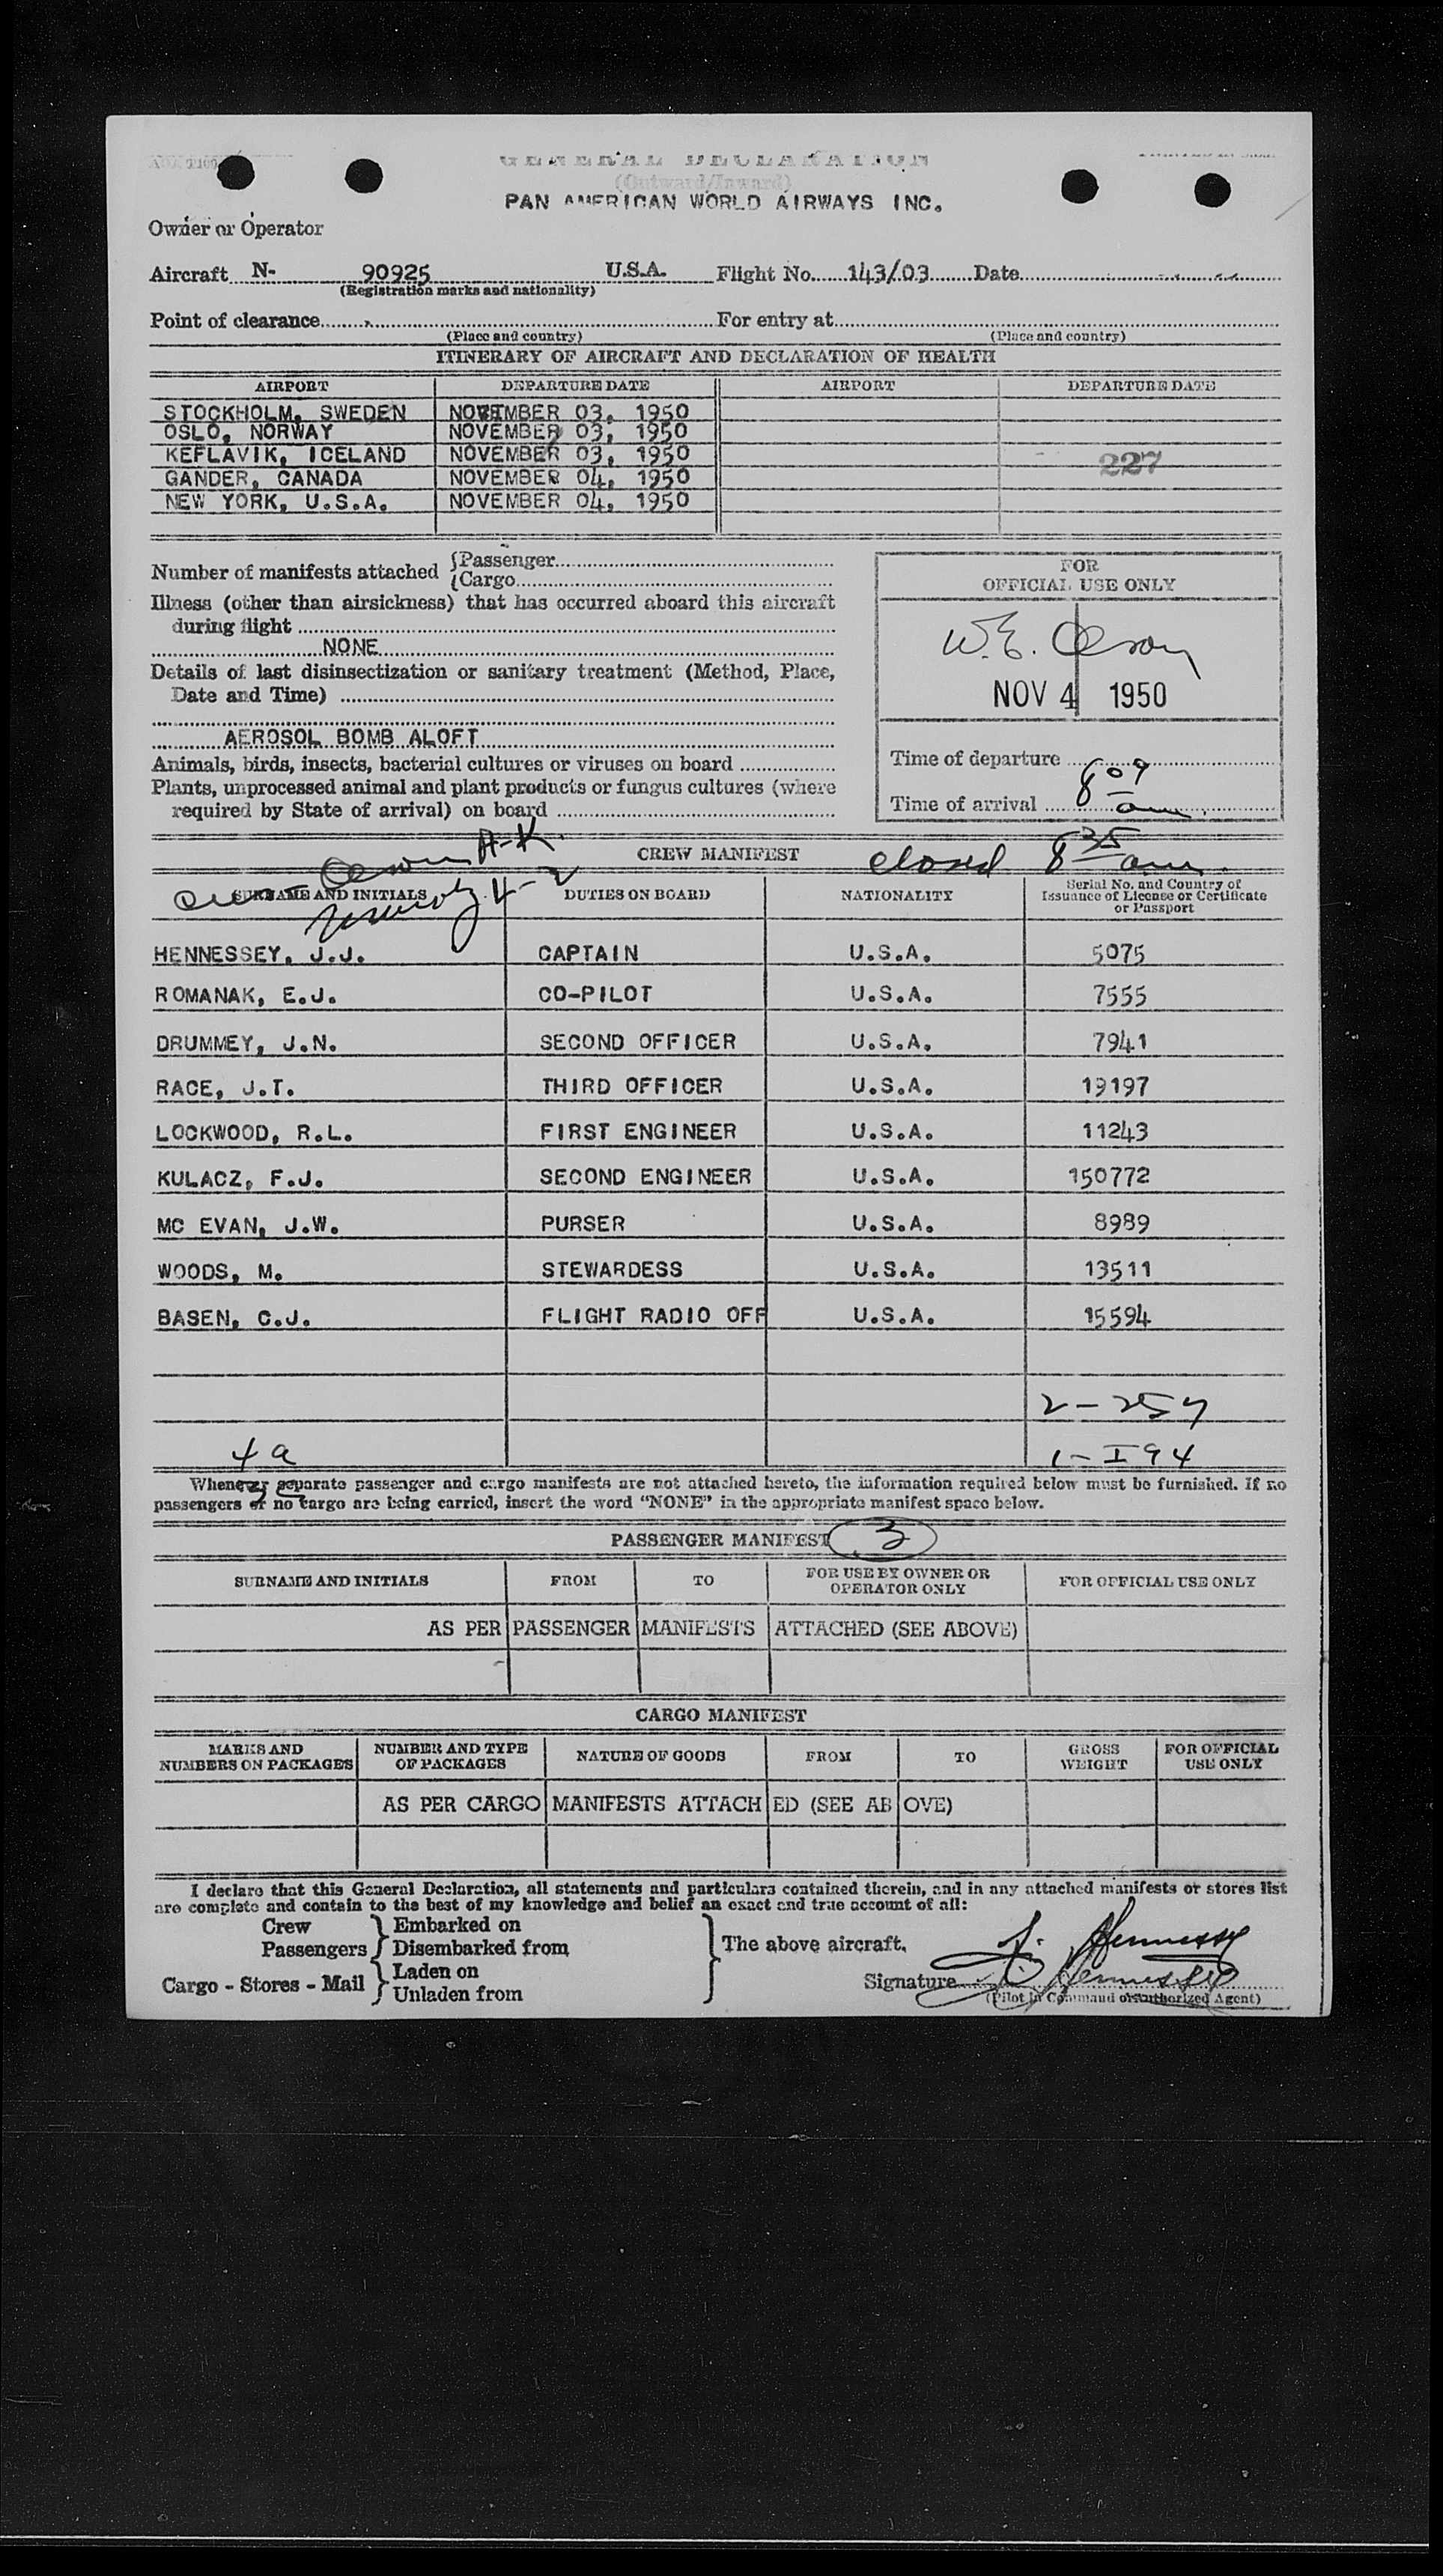 GENERAL DECLARATION
(Outward/Inward)
PAN AMERICAN WORLD AIRWAYS INC.
Owner or Operator
Aircraft N- 90925 U.S.A. Flight No. 143/03 Date
(Registration marks and nationality)
Point of clearance For entry at
(Place and country) (Place and country)
ITINERARY OF AIRCRAFT AND DECLARATION OF HEALTH
AIRPORT DEPARTURE DATE AIRPORT DEPARTURE DATE
STOCKHOLM, SWEDEN NOVEMBER 03, 1950
OSLO, NORWAY NOVEMBER 03, 1950
KEFLAVIK, ICELAND NOVEMBER 03, 1950
227
GANDER, CANADA NOVEMBER 04, 1950
NEW YORK, U.S.A. NOVEMBER 04, 1950
Number of manifests attached {Passenger
{Cargo
Illness (other than airsickness) that has occurred aboard this aircraft
during flight
NONE
Details of last disinsectization or sanitary treatment (Method, Place,
Date and Time)
AEROSOL BOMB ALOFT
Animals, birds, insects, bacterial cultures or viruses on board
Plants, unprocessed animal and plant products or fungus cultures (where
required by State of arrival) on board
FOR
OFFICIAL USE ONLY
W.E. Olson
NOV 4 1950
Time of departure
Time of arrival 8 09 am
A-K
CREW MANIFEST closed 8 35 am.
SURNAME AND INITIALS DUTIES ON BOARD NATIONALITY Serial No. and Country of
Issuance of License or Certificate
or Passport
HENNESSEY, J.J. CAPTAIN U.S.A. 5075
ROMANAK, E.J. CO-PILOT U.S.A. 7555
DRUMMEY, J.N. SECOND OFFICER U.S.A. 7941
RACE, J.T. THIRD OFFICER U.S.A. 19197
LOCKWOOD, R.L. FIRST ENGINEER U.S.A. 11243
KULACZ, F.J. SECOND ENGINEER U.S.A. 150772
MC EVAN, J.W. PURSER U.S.A. 8989
WOODS, M. STEWARDESS U.S.A. 13511
BASEN, C.J. FLIGHT RADIO OFF U.S.A. 15594
2-257
4a 1-I94
Whenever separate passenger and cargo manifests are not attached hereto, the information required below must be furnished. If no
passengers or no cargo are being carried, insert the word "NONE" in the appropriate manifest space below.
PASSENGER MANIFEST 3
SURNAME AND INITIALS FROM TO FOR USE BY OWNER OR
OPERATOR ONLY FOR OFFICIAL USE ONLY
AS PER PASSENGER MANIFESTS ATTACHED (SEE ABOVE)
CARGO MANIFEST
MARKS AND
NUMBERS ON PACKAGES NUMBER AND TYPE
OF PACKAGES NATURE OF GOODS FROM TO GROSS
WEIGHT FOR OFFICIAL
USE ONLY
AS PER CARGO MANIFESTS ATTACHED (SEE ABOVE)
I declare that this General Declaration, all statements and particulars contained therein, and in any attached manifests or stores list
are complete and contain to the best of my knowledge and belief an exact and true account of all:
Crew } Embarked on
Passengers } Disembarked from
Cargo - Stores - Mail } Laden on
Unladen from
} The above aircraft.
J. Hennessy
Signature J. Hennessey
(Pilot in Command or Authorized Agent)